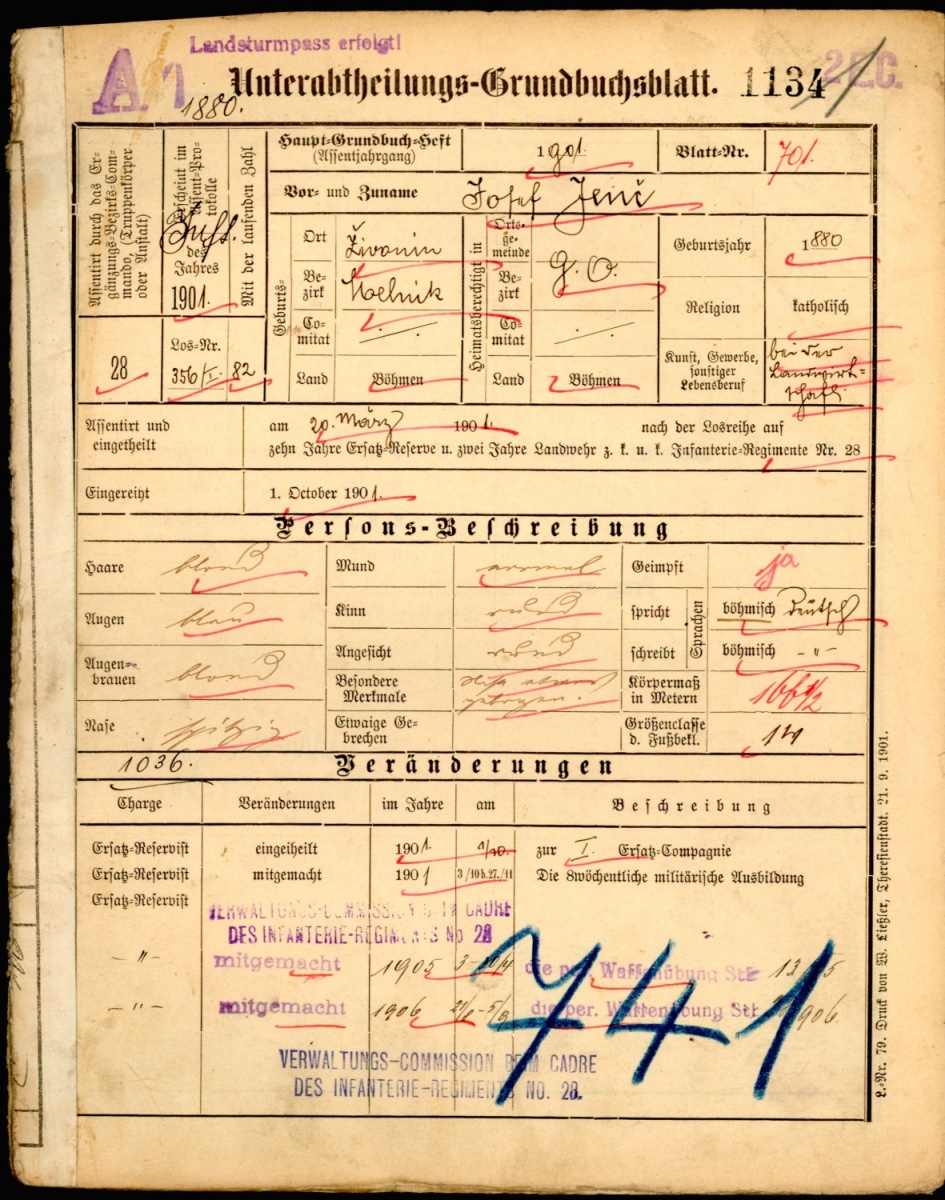 A. 1
Landsturmpass erfolgt!
1880.
Unterabtheilungs-Grundbuchsblatt. 1134
Assentirt durch das Ergänzungs-Bezirks-Commando, (Truppenkörper oder Anstalt)
28
Erscheint im Assent-Protokolle
des
Jahres
1901.
Mit der laufenden Zahl
Los-Nr.
356/I. 82
Haupt-Grundbuch-Heft
(Assentjahrgang)
1901.
Blatt-Nr.
701.
Vor- und Zuname
Josef
Geburts-
Ort
Bezirk
Melnik
Comitat
Land
Böhmen
Heimatsberechtigt in
Ortsgemeinde
Bezirk
G. O.
Comitat
Land
Böhmen
Geburtsjahr
1880
Religion
katholisch
Kunst, Gewerbe,
sonstiger
Lebensberuf
bei der
Landwirt-
schaft.
Assentirt und
eingetheilt
am 20. März 1901. nach der Losreihe auf
zehn Jahre Ersatz-Reserve u. zwei Jahre Landwehr z. k. u. k. Infanterie-Regimente Nr. 28
Eingereiht
1. October 1901.
Persons-Beschreibung
Haare blond
Mund normal
Geimpft ja
Augen blau
Kinn rund
spricht
Sprachen
böhmisch deutsch
Angesicht rund
schreibt
böhmisch -"-
Augen-
brauen blond
Besondere
Merkmale
Körpermaß
in Metern
166½
Nase spitzig
Etwaige Ge-
brechen
Größenclasse
d. Fußbekl.
1036.
Veränderungen
Charge Veränderungen im Jahre am Beschreibung
Ersatz-Reservist eingetheilt 1901. 1/10. zur I. Ersatz-Compagnie
Ersatz-Reservist mitgemacht 1901 3/10 b. 27./11 Die 8wöchentliche militärische Ausbildung
Ersatz-Reservist
VERWALTUNGS-COMMISSION CADRE
DES INFANTERIE-REGIMENTS No 28
-"- mitgemacht 1905 die per. Waffenübung
-"- mitgemacht 1906 die per. Waffenübung
741
VERWALTUNGS-COMMISSION BEIM CADRE
DES INFANTERIE-REGIMENTS NO. 28.
L.-Nr. 79. Druck von W. Ließler, Theresienstadt. 21. 9. 1901.